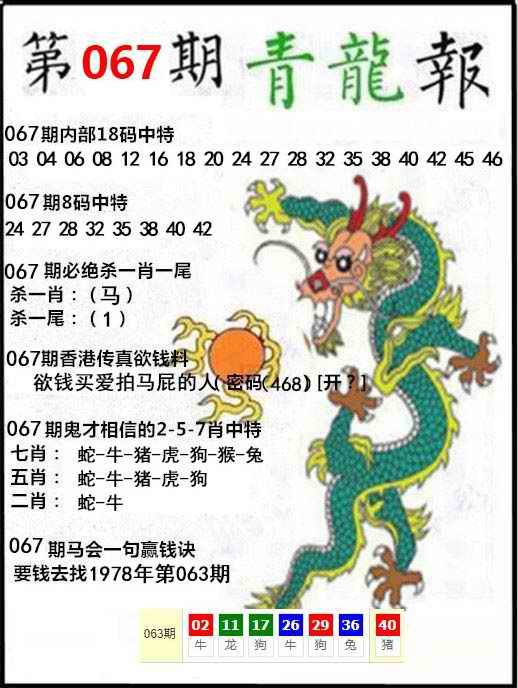 第067期青龍報
067期内部18码中特
03 04 06 08 12 16 18 20 24 27 28 32 35 38 40 42 45 46
067期8码中特
24 27 28 32 35 38 40 42
067期必绝杀一肖一尾
杀一肖：（马）
杀一尾：（1）
067期香港传真欲钱料
欲钱买爱拍马屁的人(密码(468)[开？]
067期鬼才相信的2-5-7肖中特
七肖： 蛇-牛-猪-虎-狗-猴-兔
五肖： 蛇-牛-猪-虎-狗
二肖： 蛇-牛
067期马会一句赢钱诀
要钱去找1978年第063期
063期 02 11 17 26 29 36 40
牛 龙 狗 牛 狗 兔 猪